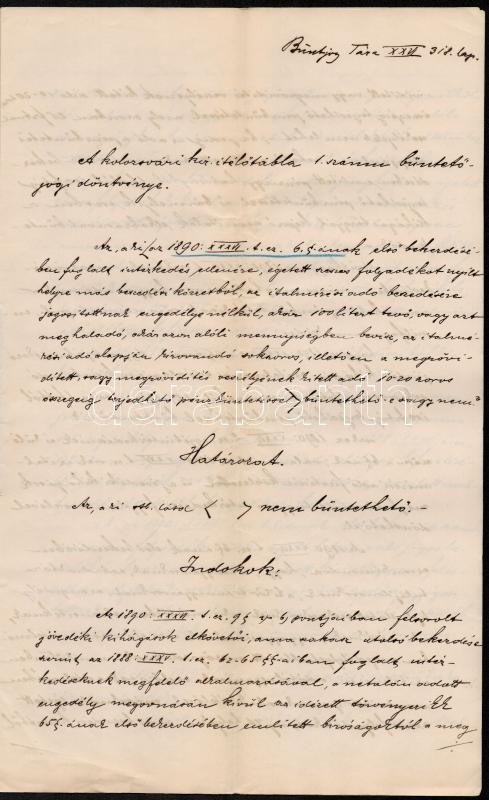 Büntetőjog Tára XXVI 318. lap.
A kolozsvári kir. itélőtábla 1. számu büntető-
jogi döntvénye.
Az, a ki az 1890: XXXVI. t. cz. 6. §-ának első bekezdésé-
ben foglalt intézkedés ellenére, égetett szeszes folyadékot nyílt
helyre más beszedési körzetből, az italmérési adó beszedésére
jogosítottnak engedélye nélkül, akár 100 litert tevő, vagy azt
meghaladó, akár azon alóli mennyiségben bevisz, az italmé-
rési adó alapján kiszabandó sokszoros, illetően a megrövi-
dített, vagy megrövidítés veszélyének kitett adó 10-szeres
összegéig terjedhető pénzbüntetéssel büntethető-e vagy nem?
darabanth
Határozat.
Az, a ki stb. lásd < > nem büntethető. –
Indokok:
Az 1890: XXXVI. t. cz. 9 § b) pontjaiban felsorolt
jövedéki kihágások elkövetői, annak utolsó bekezdése
szerint az 1888: XXXV. t. cz. 62-65 §§-aiban foglalt intéz-
kedéseknek megfelelő alkalmazásával, a netalán adott
engedély megvonásán kivül az idézett törvényczikk
65 §-ának első bekezdésében említett biróságoktól a meg